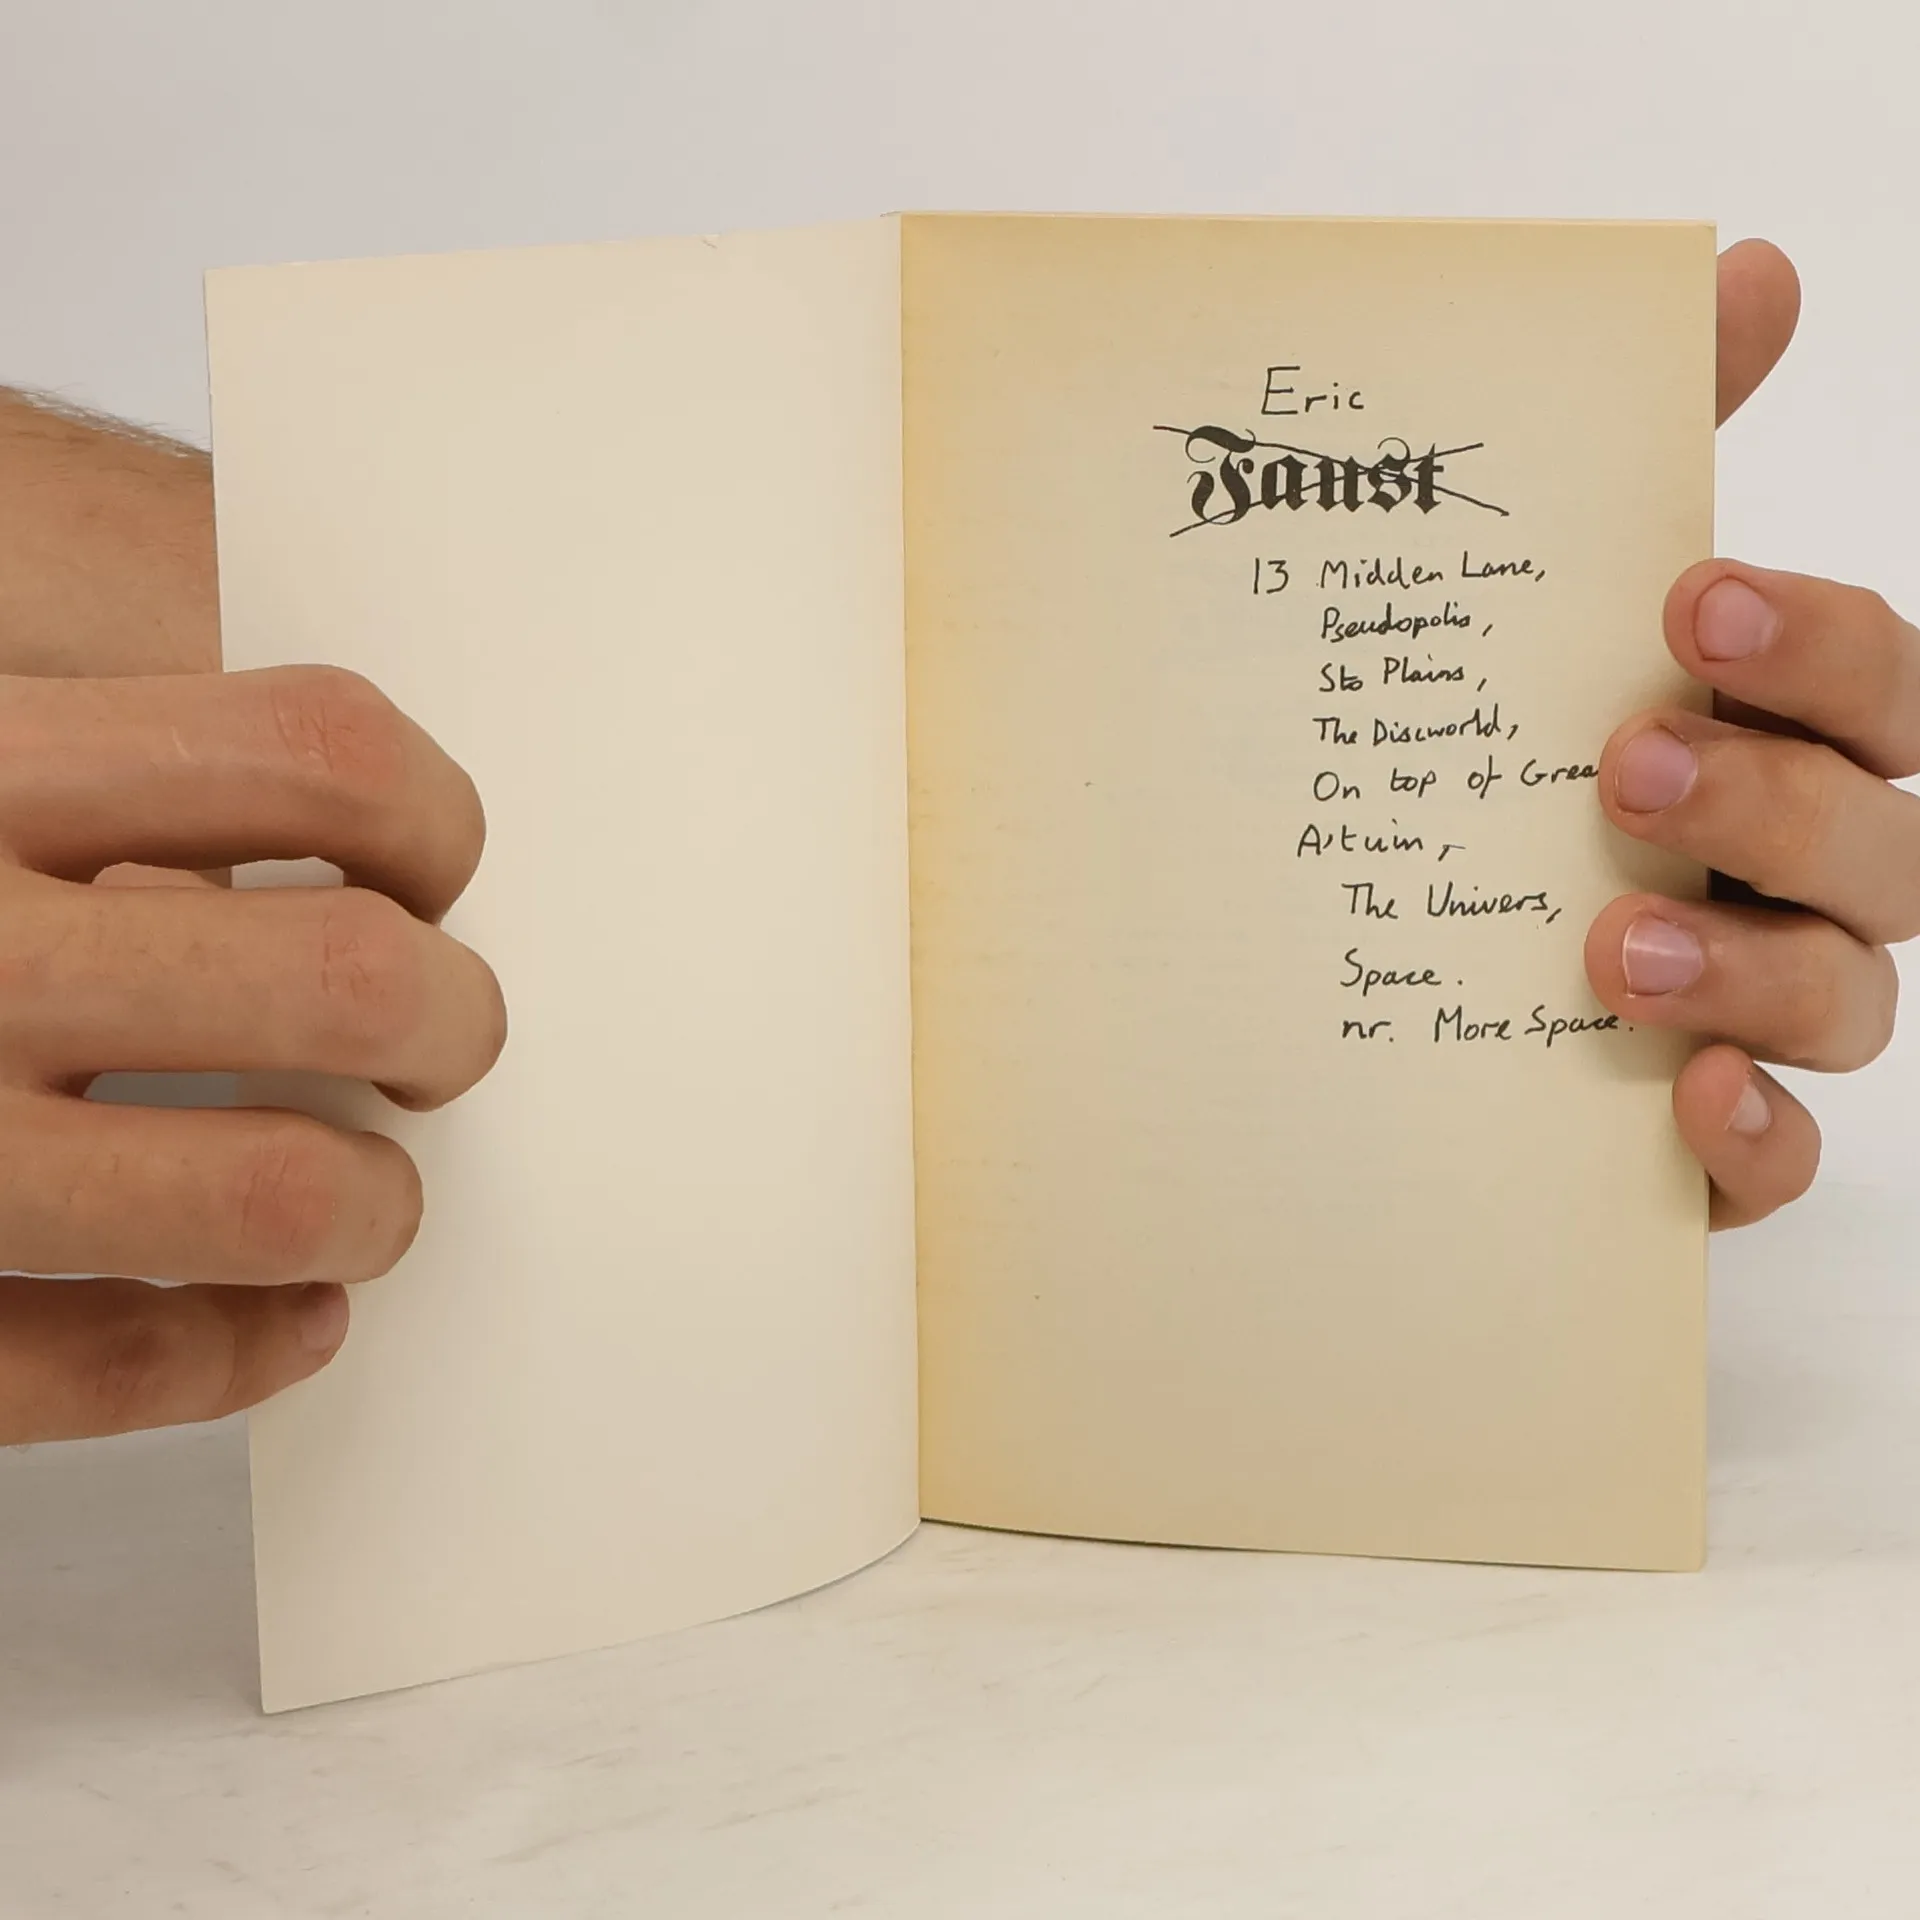 Eric
Faust
13 Midden Lane,
Pseudopolis,
Sto Plains,
The Discworld,
On top of Grea
A'tuin,
The Univers,
Space.
nr. More Space.